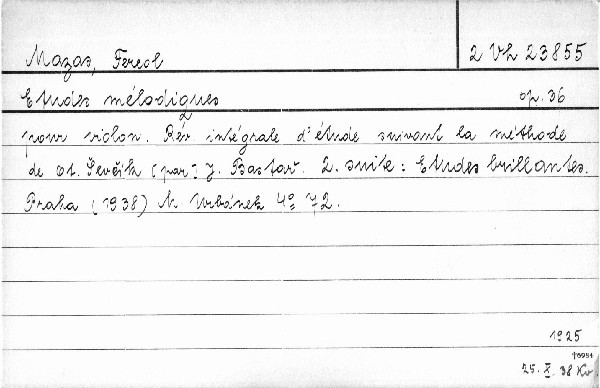 Mazas, Fereol
2 Vh 23855
Etudes mélodiques op. 36
pour violon. Rév intégrale d'étude suivant la méthode
de Ot. Ševčík (par) J. Bastař. 2. suite: Etudes brillantes.
Praha (1938) M. Urbánek 4° 72.
1925
†6984
25. X. 38 Kv.